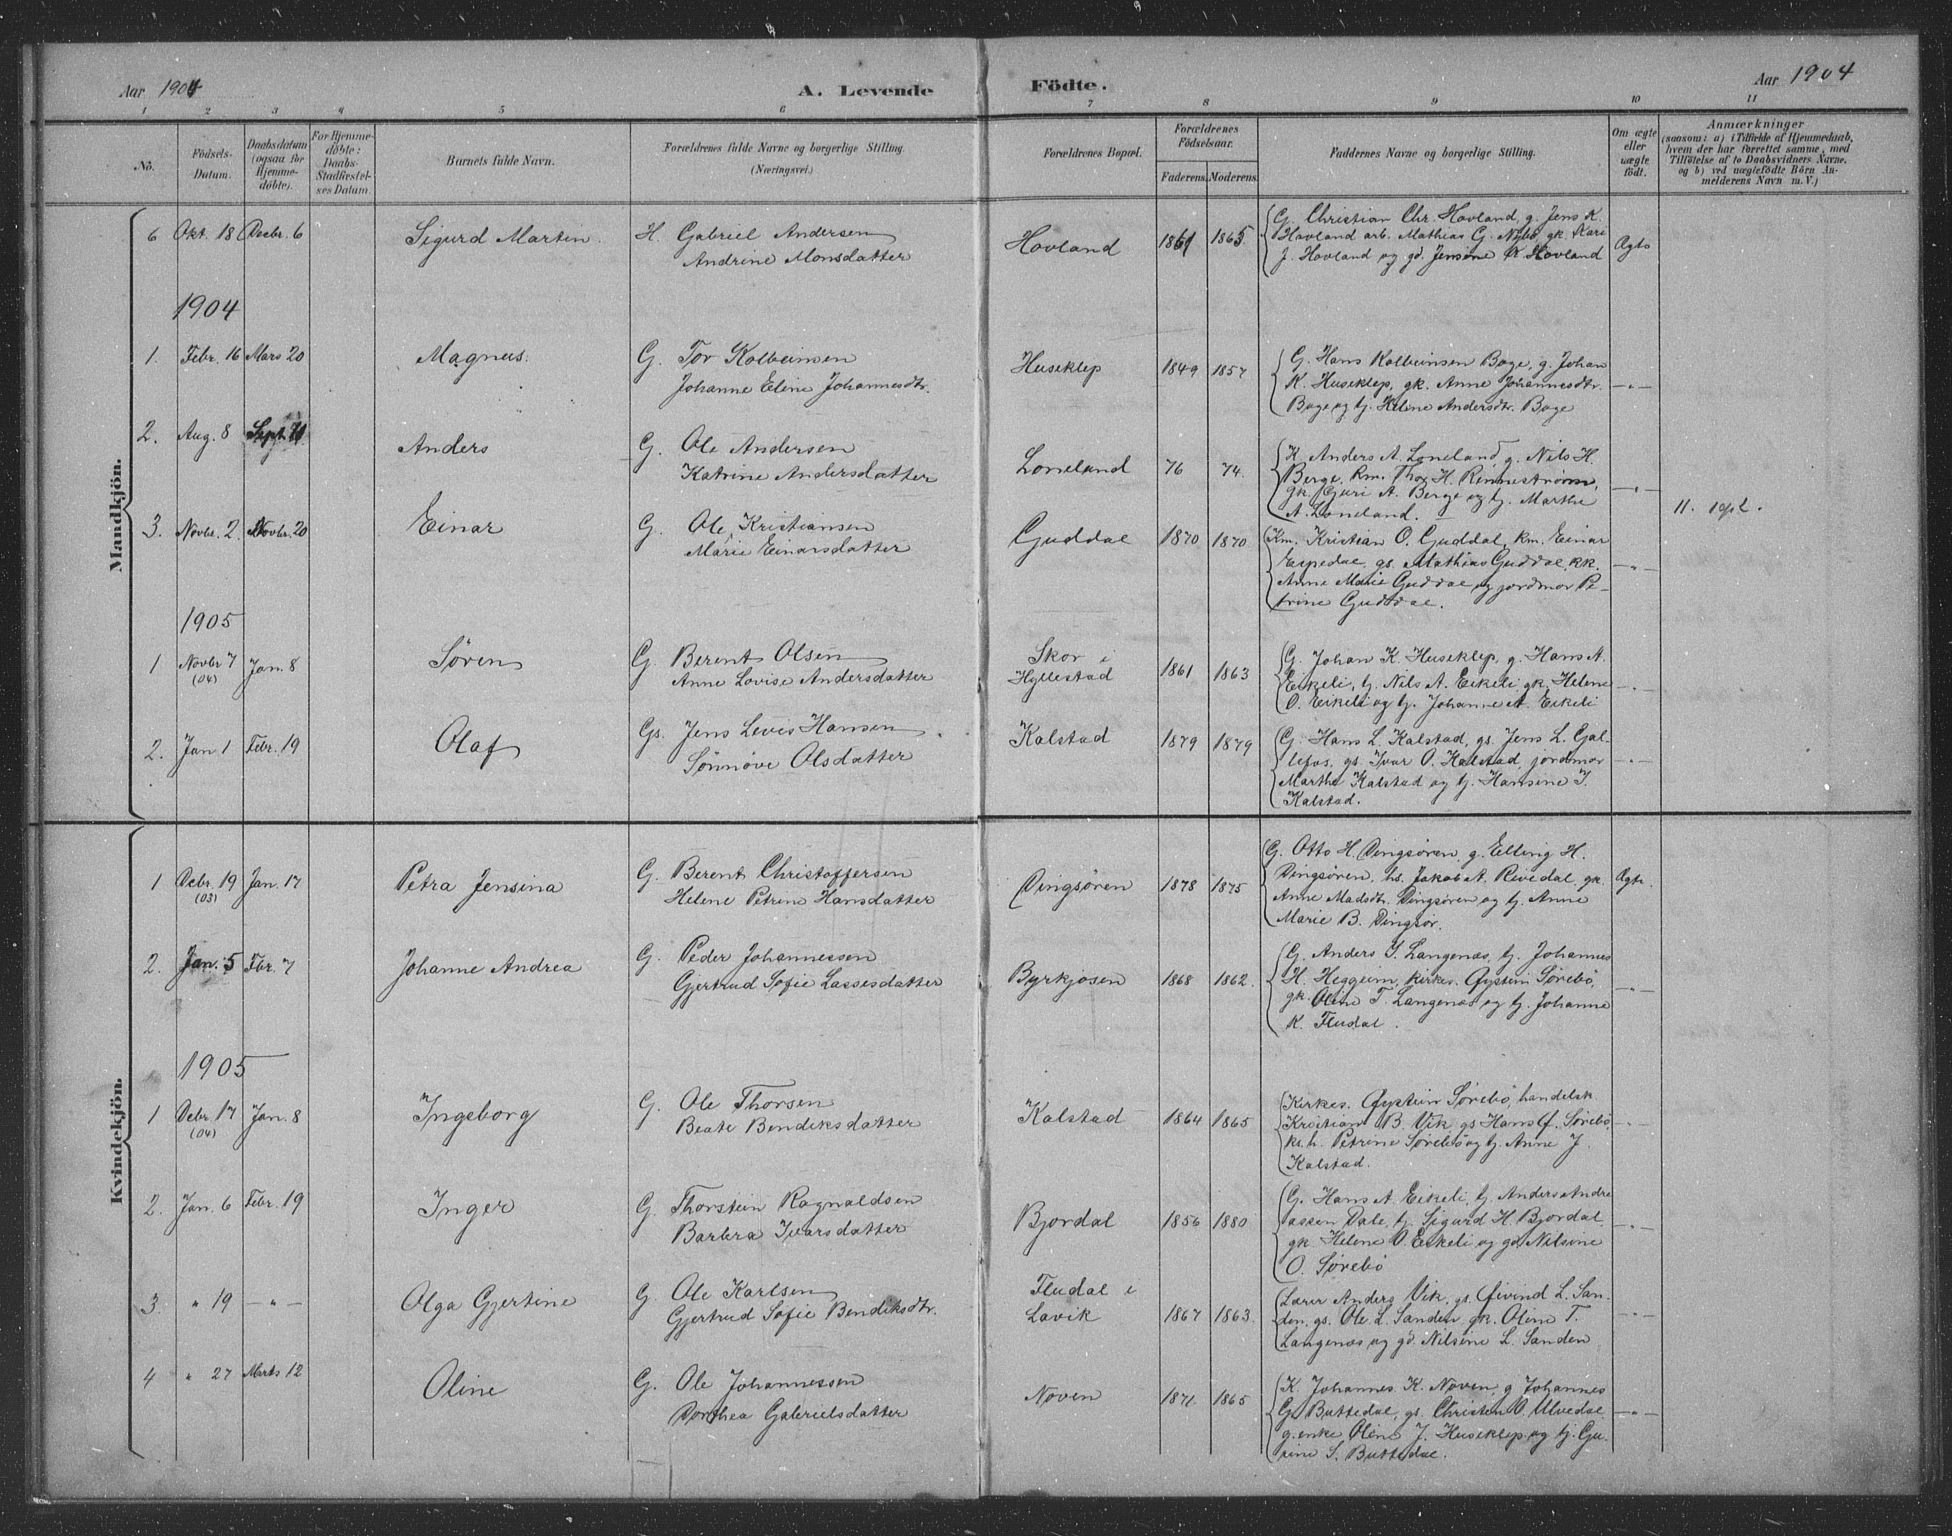 Aar 1904 A. Levende Födte. Aar 1904
1 2 3 4 5 6 7 8 9 10 11
No.
Födsels-Datum.
Daabsdatum (ogsaa for Hjemmedöbte).
For Hjemmedöbte: Daabs-Stadfæstelses Datum.
Barnets fulde Navn.
Forældrenes fulde Navne og borgerlige Stilling. (Næringsvei.)
Forældrenes Bopæl.
Forældrenes Födselsaar.
Faderens. Moderens.
Faddernes Navne og borgerlige Stilling.
Om ægte eller uægte födt.
Anmærkninger
(saasom: a) i Tilfælde af Hjemmedaab,
hvem der har forrettet samme, med
Tilföielse af to Daabsvidners Navne,
og b) ved uægtefödte Börn An-
melderens Navn m. V.)
Mandkjön.
6 Okt. 18 Decbr. 6 Sigurd Martin H. Gabriel Andersen
Andrine Monsdatter
Hovland 1861 1865
G. Christian Chr. Hovland, g. Jens K.
Hovland arb. Mathias G. Nybö gk. Kari
J. Hovland og gd. Jensine K. Hovland
Ægte
1904
1. Febr. 16 Mars 20 Magnus. G. Tor Kolbeinsen
Johanne Eline Johannesdtr.
Huseklep 1849 1857
G. Hans Kolbeinsen Boge, g. Johan
K. Huseklep, gk. Anne Johannesdtr.
Boge og tj. Helene Andersdtr. Boge
—"—
2. Aug. 8 Sept. Anders G. Ole Andersen
Katrine Andersdatter
Loneland 76 74.
K. Anders A. Loneland, g. Nils H.
Berge, km. Thor H. Rennestrøm,
gk. Guri A. Berge og tj. Marthe
A. Loneland.
—"—
3. Novbr. 2. Novbr. 20 Einar G. Ole Kristiansen
Marie Einarsdatter
Guddal 1870 1870
Km. Kristian O. Guddal, km. Einar
Espedal, gs. Mathias Guddal, kk.
Anne Marie Guddal og jordmor Pe-
trine Guddal.
—"—
11.
1905
1 Novbr 7 (04) Jan. 8 Søren G. Berent Olsen
Anne Lovise Andersdatter
Skor i
Hyllestad
1861 1863
G. Johan K. Huseklep, g. Hans A.
Eikeli, tj. Nils A. Eikeli gk. Helene
O. Eikeli og tj. Johanne A. Eikeli
—"—
2. Jan 1 Febr. 19 Olaf Gs. Jens Levis Hansen
Sønnøve Olsdatter
Kalstad 1879 1879
G. Hans L. Kalstad, gs. Jens L. Gal-
lefos, gs. Ivar O. Kalstad, jordmor
Marthe Kalstad og tj. Hansine I.
Kalstad.
—"—
Kvindekjön.
1 Decbr. 19 (03) Jan. 17 Petra Jensina G. Berent Christoffersen
Helene Petrine Hansdatter
Dingsøren 1878 1875
G. Otto H. Dingsøren, g. Elling H.
Dingsøren, hs. Jakob A. Rivedal, gk.
Anne Madsdtr. Dingsøren og tj. Anne
Marie B. Dingsør.
Ægte.
2. Jan. 5 Fbr. 7 Johanne Andrea G. Peder Johannessen
Gjertrud Sofie Lassesdatter
Byrkjosen 1868 1862.
G. Anders I. Langenæs, tj. Johannes
H. Heggeim, kirkes. Øystein Sørebö,
gk. Oline T. Langenæs og tj. Johanne
K. Fludal.
—"—
1905
1 Decbr. 17 (04) Jan. 8 Ingeborg G. Ole Thorsen
Beate Bendiksdatter
Kalstad 1864 1865
Kirkes. Øystein Sørebö, handelsk.
Kristian B. Vik, gs Hans Ø. Sørebö,
kk. Petrine Sørebö og tj. Anne J.
Kalstad.
—"—
2. Jan. 6 Febr. 19 Inger G. Thorstein Ragnaldsen
Barbra Ivarsdatter
Bjordal 1856 1880
G. Hans A. Eikeli, tj. Anders Andre
assen Dale, tj. Sigurd H. Bjordal,
gk. Helene O. Eikeli og gd. Nilsine
O. Sørebö
—"—
3. " 19 —"— Olga Gjertine G. Ole Karlsen
Gjertrud Sofie Bendiksdtr.
Fludal i
Lavik
1867 1863.
Lærer Anders Vik, gs. Øivind L. San-
den, gs. Ole L. Sanden gk. Oline T.
Langenæs og gd. Nilsine L. Sanden
—"—
4 " 27 Marts 12 Oline G. Ole Johannessen
Dorthea Gabrielsdatter
Noven 1871. 1865
K. Johannes K. Noven, g Johannes
G. Buttedal, gs. Christen O. Ulvedal
g.enke Oline J. Huseklep og tj. Gu-
rine S. Buttedal.
—"—